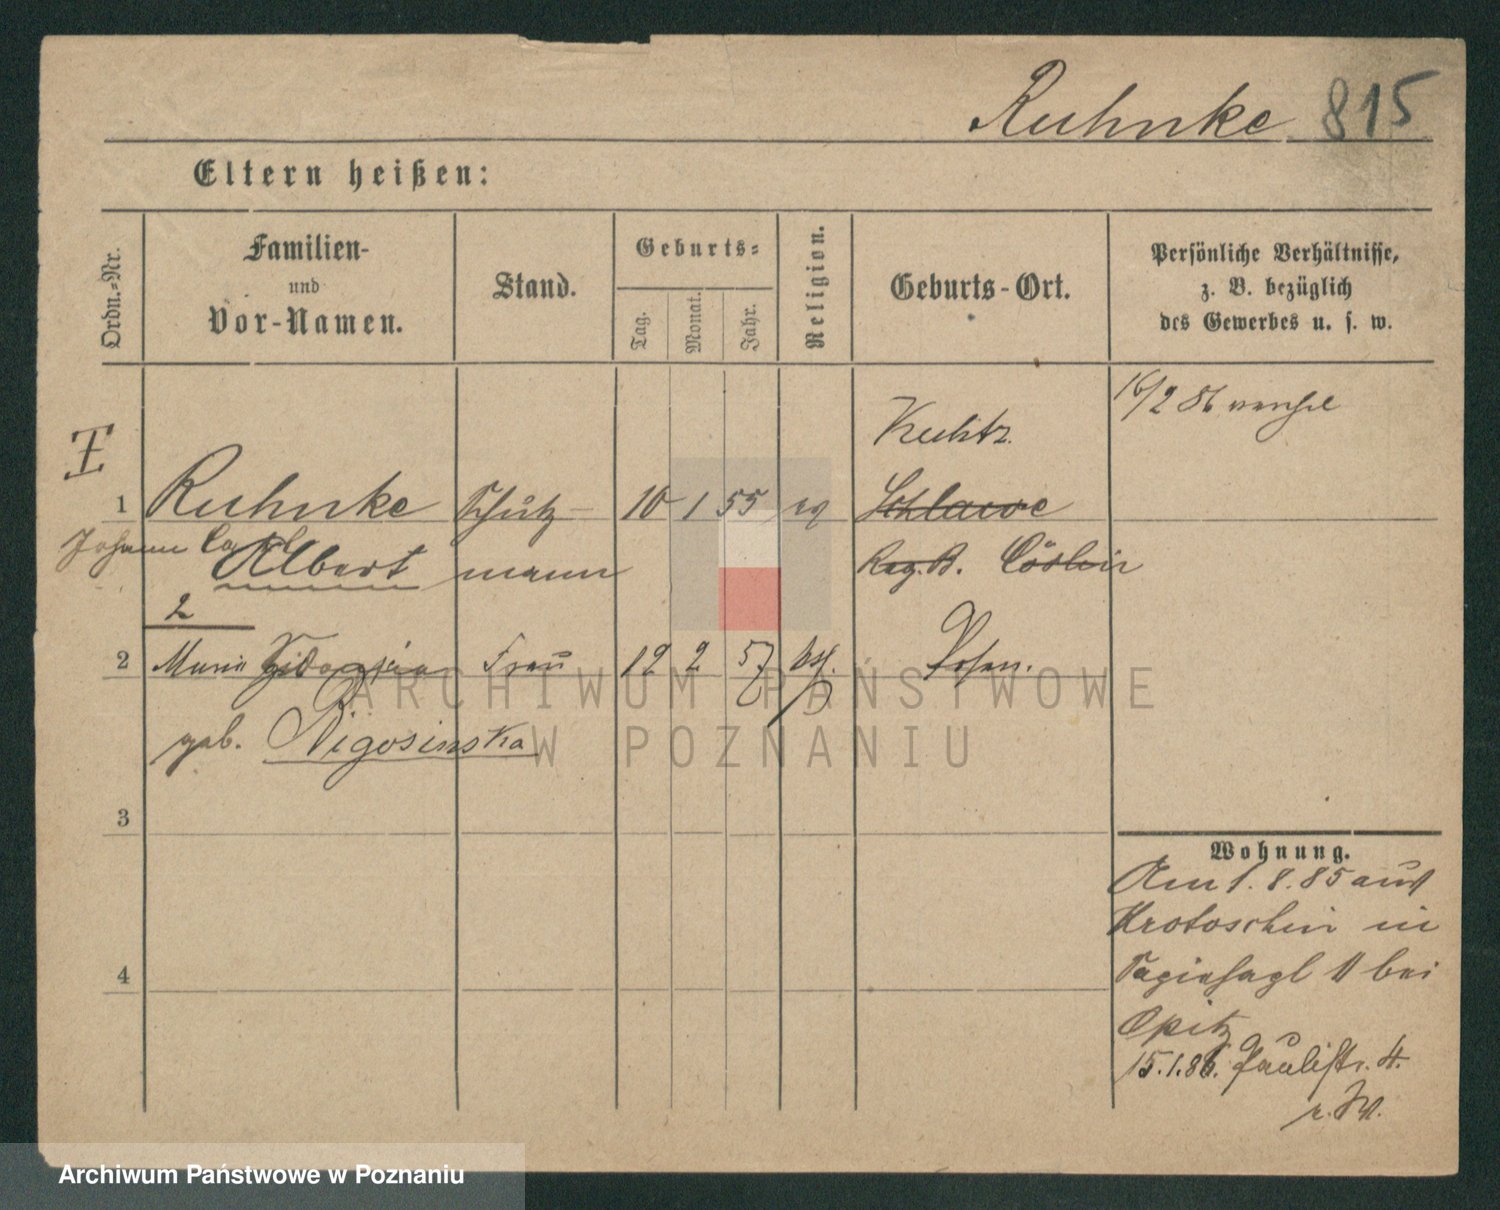 Ruhnke 815
Eltern heißen:
Ordn.-Nr.
Familien-
und
Vor-Namen.
Stand.
Geburts-
Tag.
Monat.
Jahr.
Religion.
Geburts-Ort.
Persönliche Verhältnisse,
z. B. bezüglich
des Gewerbes u. s. w.
16/2 86
1 Ruhnke Schutz- 10 1 55 ev Schlawe
Johann Carl
Albert mann Reg. B. Cöslin
2
2 Marie Frau 12 2 57 kath. Posen.
geb. Nigosinska
3
4
Wohnung.
Am 1. 8. 85 aus
Krotoschin in
bei
Opitz
15.1.86. Paulistr. 4.
ARCHIWUM PAŃSTWOWE
W POZNANIU
Archiwum Państwowe w Poznaniu